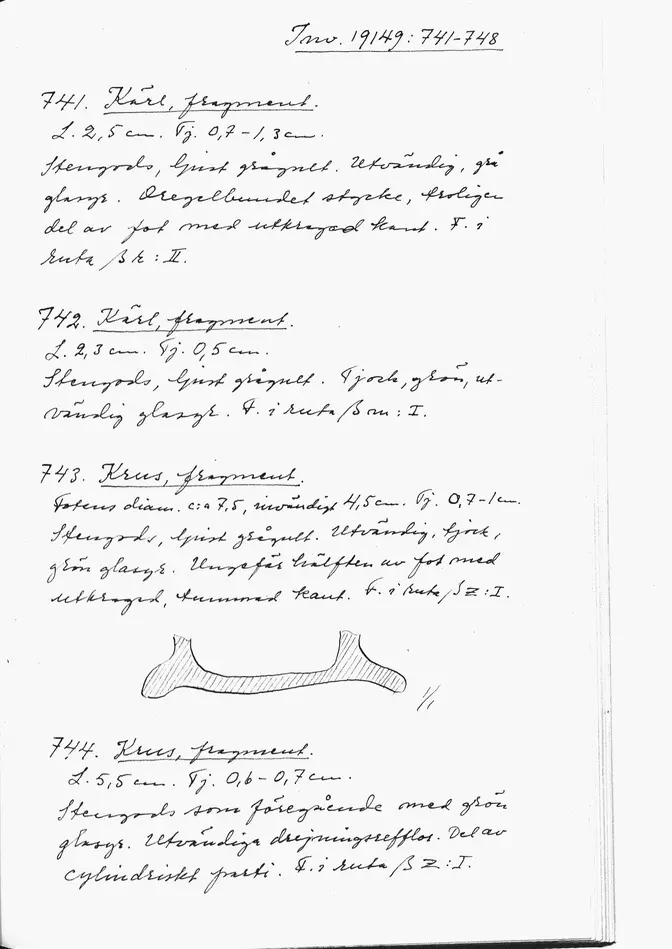 Inv. 19149: 741-748
741. Kärl, fragment.
L. 2,5 cm. Tj. 0,7-1,3 cm.
Stengods, ljust grågult. Utvändig, grå
glasyr. Oregelbundet stycke, troligen
del av fot med utkragad kant. F. i
ruta β k : II.
742. Kärl, fragment.
L. 2,3 cm. Tj. 0,5 cm.
Stengods, ljust grågult. Tjock, grön, ut-
vändig glasyr. F. i ruta β m : I.
743. Krus, fragment.
Fotens diam. c:a 7,5, invändigt 4,5 cm. Tj. 0,7-1 cm.
Stengods, ljust grågult. Utvändig, tjock,
grön glasyr. Ungefär hälften av fot med
utkragad, tummad kant. F. i ruta β z : I.
1/1
744. Krus, fragment.
L. 5,5 cm. Tj. 0,6-0,7 cm.
Stengods som föregående med grön
glasyr. Utvändiga drejningsrefflor. Del av
cylindriskt parti. F. i ruta β z : I.